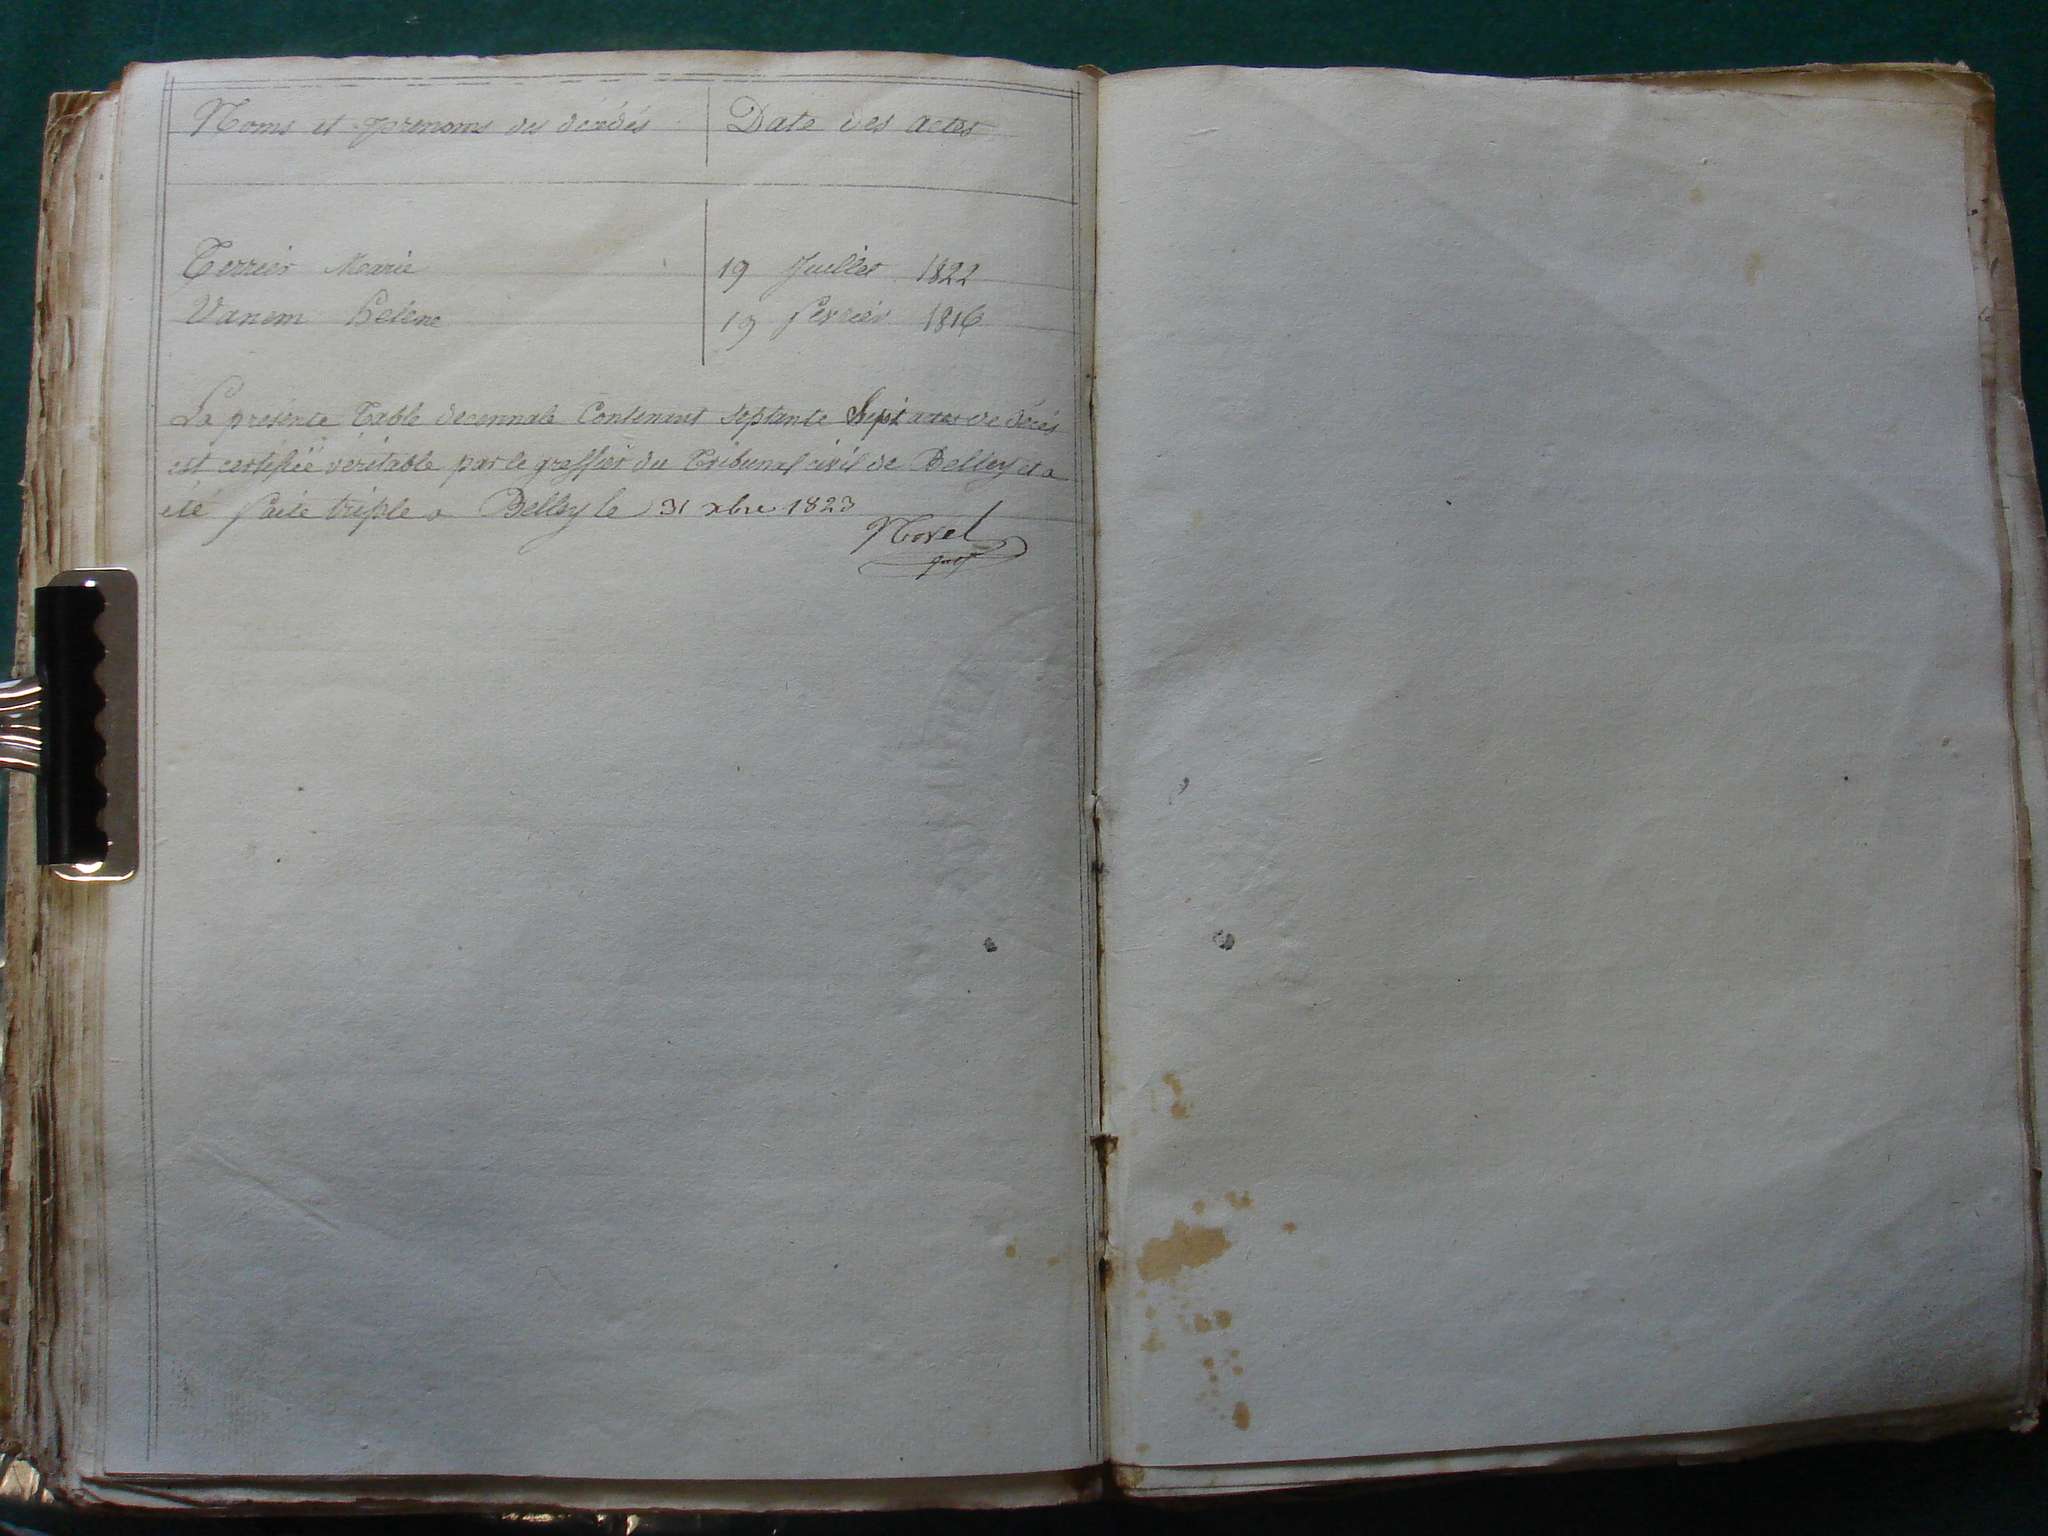 Noms et prenoms des décédés Date des actes
Terrier Marie 19 Juillet 1822
Vanem heléne 19 fevrier 1816
La présente Table decennale Contenant Septante Sept actes de décés
est certifiée véritable par le greffier du Tribunal civil de Belley et a
été faite triple a Belley le 31 xbre 1823
greff